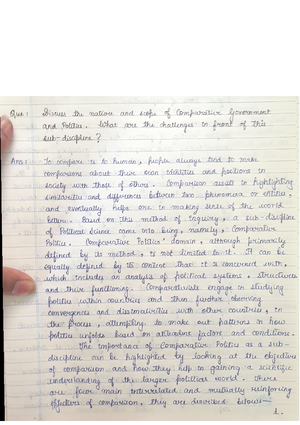 Que: Discuss the nature and scope of Comparative Government
and Politics. What are the challenges in front of this
sub-discipline?
Ans: To compare is to human, people always tend to make
comparisons about their own identities and positions in
society with those of others. Comparison assists in highlighting
similarities and differences between two phenomena or entities,
and eventually helps one in making sense of the world
better. Based on this method of inquiry, a sub-discipline
of Political Science came into being, namely, Comparative
Politics. Comparative Politics' domain, although primarily
defined by its method, is not limited to it. It can be
equally defined by its content that it is concerned with,
which includes an analysis of political systems, structures
and their functioning. Comparativists engage in studying
politics within countries and then further drawing
convergences and dissimilarities with other countries, in
the process, attempting to make out patterns in how
politics unfolds based on attainable factors and conditions.
The importance of Comparative Politics as a sub-
discipline can be highlighted by looking at the objectives
of comparison and how they help in gaining a scientific
understanding of the larger political world. There
are four main interrelated and mutually reinforcing
objectives of comparison. They are described below
1.